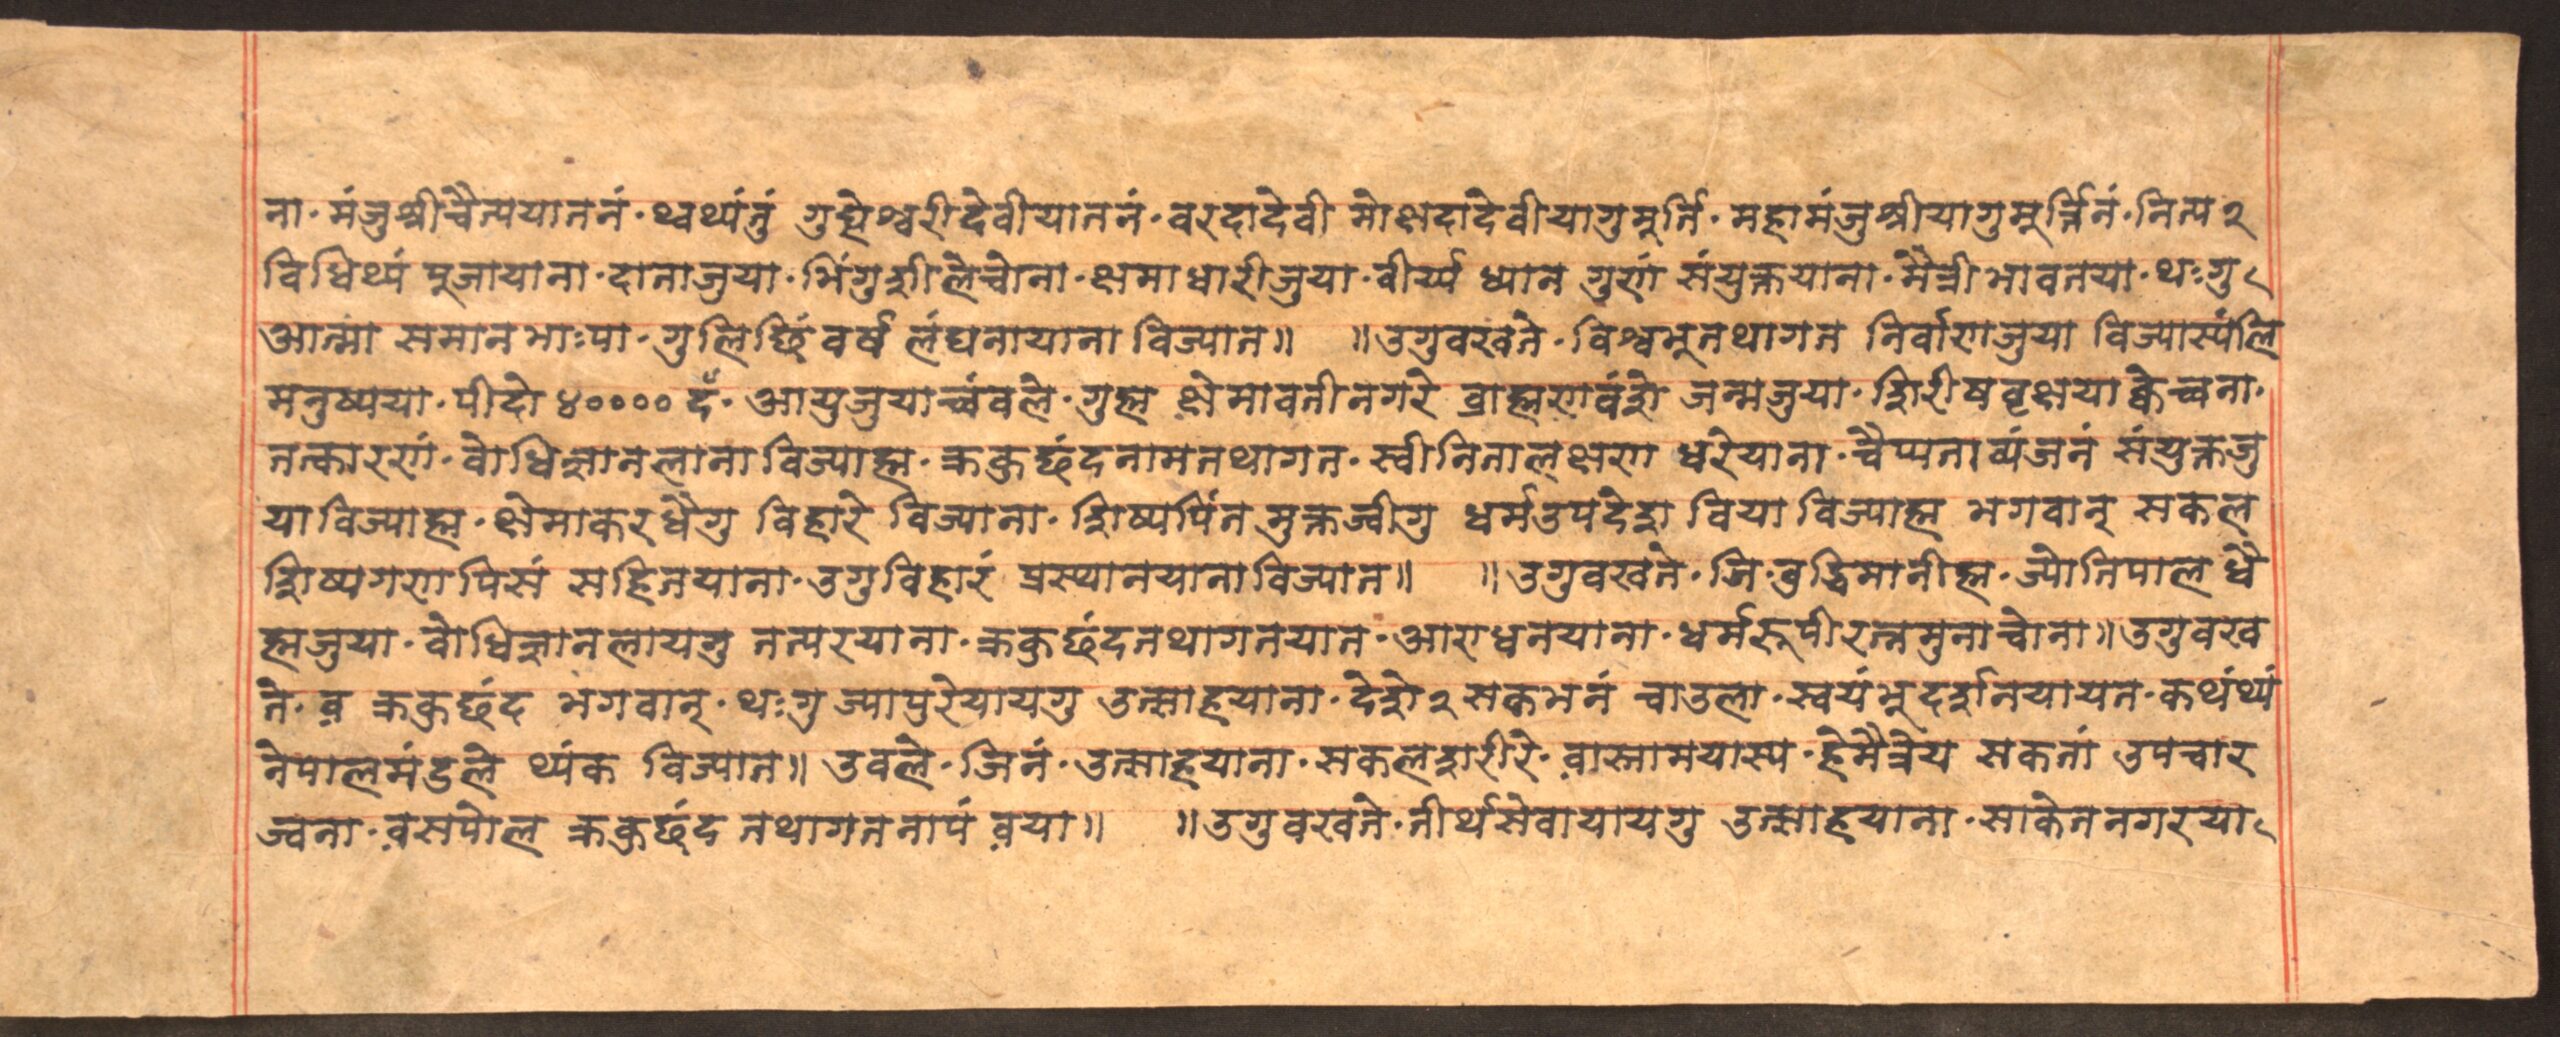 ना· मंजुश्रीचैत्ययाततं· थ्वथ्यंतुं गुह्येश्वरीदेवीयाततं· वरदादेवी मोक्षदादेवीयागुमुर्त्ति· महामंजुश्रीयागुमूर्त्तिनं· नित्य २
विधिथ्यं पूजायाना· दानाजुया· भिंगुशीलेचोना· क्षमाधारीजुया· वीर्य्य ध्यान गुणं संयुक्तयाना· मैत्रीभावतया· थःगु
आत्मा समानभाःपा· गुलिछिं वर्ष लंघनायाना विज्यात॥ ॥उगुवखते· विश्वभूतथागत निर्वाणजुया विज्यास्यंलि
मनुष्यया· पीदो ४०००० दँ· आयुजुयाच्वंवले· गुह्म क्षेमावतीनगरे ब्राह्मणवंशे जन्मजुया· शिरीषवृक्षया क्वेच्वना·
तत्कारणं· बोधिज्ञानलाना विज्याह्म· क्रकुछंदनामतथागत· स्वीनितालक्षण धरेयाना· चैप्यताव्यंजनं संयुक्तजु
याविज्याह्म· क्षेमाकरधैगु विहारे विज्याना· शिष्यपिंत मुक्तज्वीगु धर्मउपदेश विया विज्याह्म भगवान् सकल
शिष्यगणपिसं सहितयाना· उगुविहारं प्रस्थानयानाविज्यात॥ ॥उगुवखते· जि· बुद्धिमानीह्म· ज्योतिपाल धै
ह्मजुया· बोधिज्ञानलायगु तत्परयाना· क्रकुछंदतथागतयात· आराधनयाना· धर्मरूपीरत्नमुनाचोना॥ उगुवख
ते· व़ क्रकुछंद भगवान्· थःगु ज्यापुरेयायगु उत्साहयाना· देशे २ सकभनं चाउला· स्वयंभूदर्शनयायत· कथंथ्यं
नेपालमंडले थ्यंक विज्यात॥ उवले· जिनं· उत्साहयाना· सकलशरीरे· व़ास्नामयास्य· हेमैत्रेय सकतां उपचार
ज्वना· व़सपोल क्रकुछंद तथागतनापं व़या॥ ॥उगुवखते· तीर्थसेवायायगु उत्साहयाना· साकेतनगरया